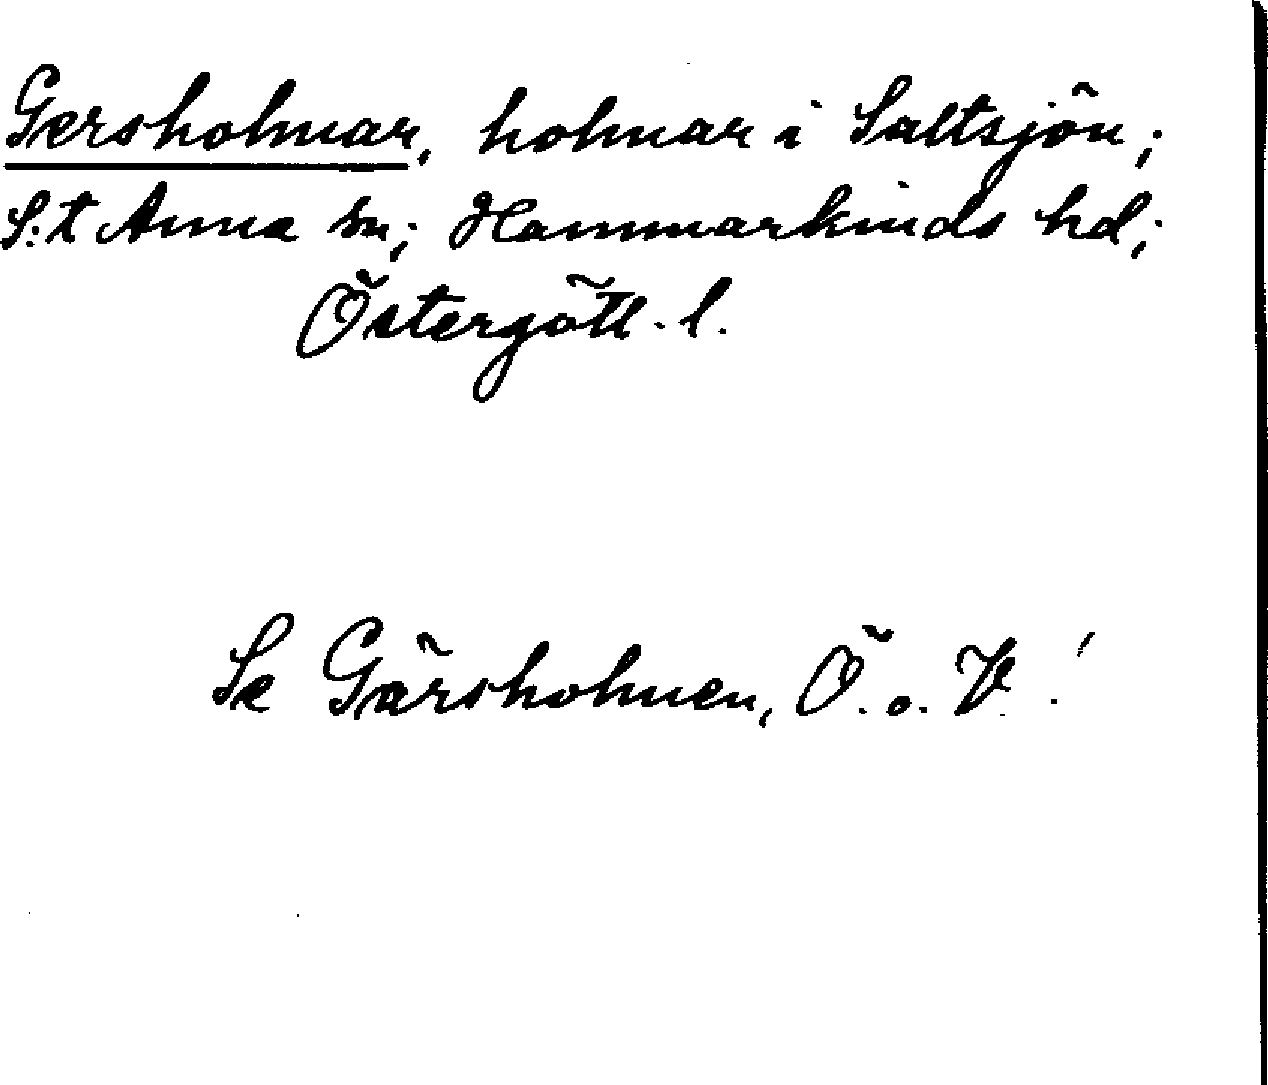 Gersholmar, holmar i Saltsjön;
S:t Anna sn; Hammarkinds hd;
Östergötl. l.
Se Gärsholmen, Ö. o. V.!